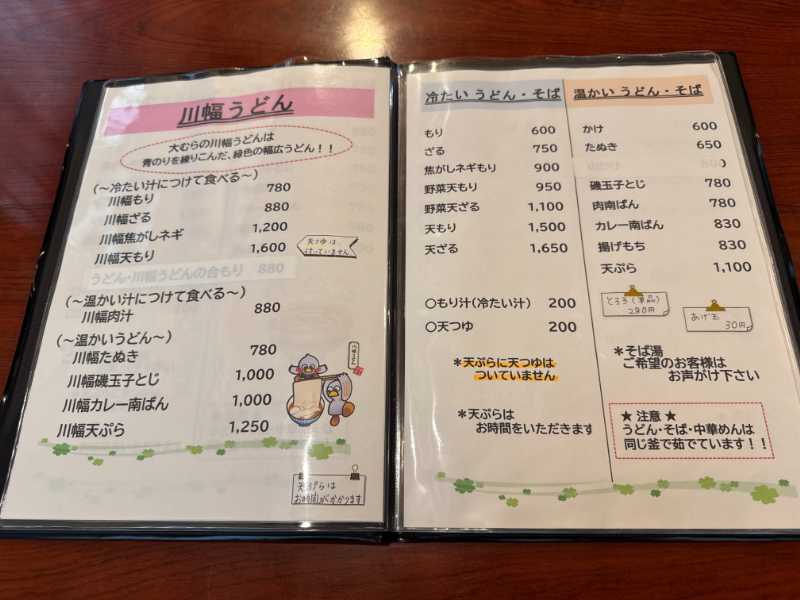 川幅うどん
大むらの川幅うどんは
青のりを練りこんだ、緑色の幅広うどん！！
（～冷たい汁につけて食べる～）
川幅もり 780
川幅ざる 880
川幅焦がしネギ 1,200
川幅天もり 1,600
天つゆは
付いていません
うどん・川幅うどんの合もり 880
（～温かい汁につけて食べる～）
川幅肉汁 880
（～温かいうどん～）
川幅たぬき 780
川幅磯玉子とじ 1,000
川幅カレー南ばん 1,000
川幅天ぷら 1,250
天ぷらは
お時間がかかります
冷たい うどん・そば
もり 600
ざる 750
焦がしネギもり 900
野菜天もり 950
野菜天ざる 1,100
天もり 1,500
天ざる 1,650
○もり汁（冷たい汁） 200
○天つゆ 200
＊天ぷらに天つゆは
ついていません
＊天ぷらは
お時間をいただきます
温かい うどん・そば
かけ 600
たぬき 650
磯玉子とじ 780
肉南ばん 780
カレー南ばん 830
揚げもち 830
天ぷら 1,100
とろろ（単品）
280円
あげ玉
30円
＊そば湯
ご希望のお客様は
お声がけ下さい
★ 注意 ★
うどん・そば・中華めんは
同じ釜で茹でています！！